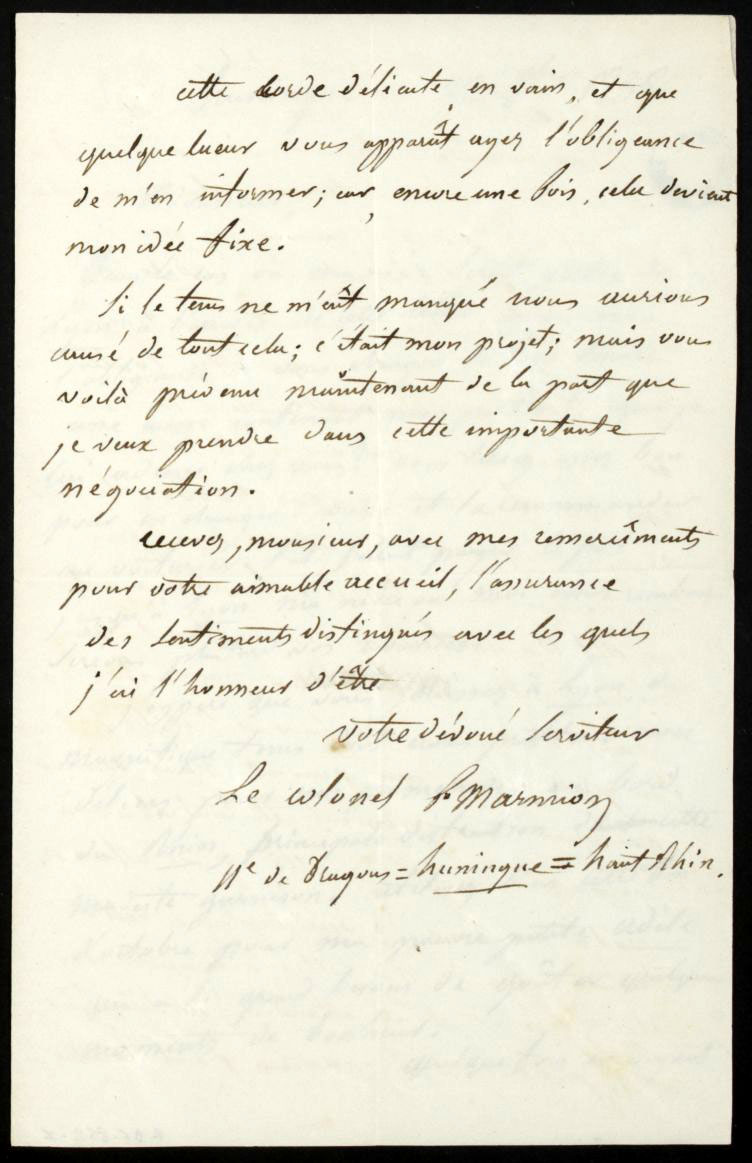 cette corde délicate en vain, et que
quelque lueur vous apparût ayez l'obligeance
de m'en informer; car, encore une fois, cela devient
mon idée fixe.
Si le tems ne m'eût manqué nous aurions
causé de tout cela; c'était mon projet; mais vous
voilà prévenu maintenant de la part que
je veux prendre dans cette importante
négociation.
recevez, monsieur, avec mes remercîments
pour votre aimable accueil, l'assurance
des sentiments distingués avec les quels
j'ai l'honneur d'être
votre dévoué serviteur
Le colonel F Marmion
11e de Dragons = huningue = haut Rhin.